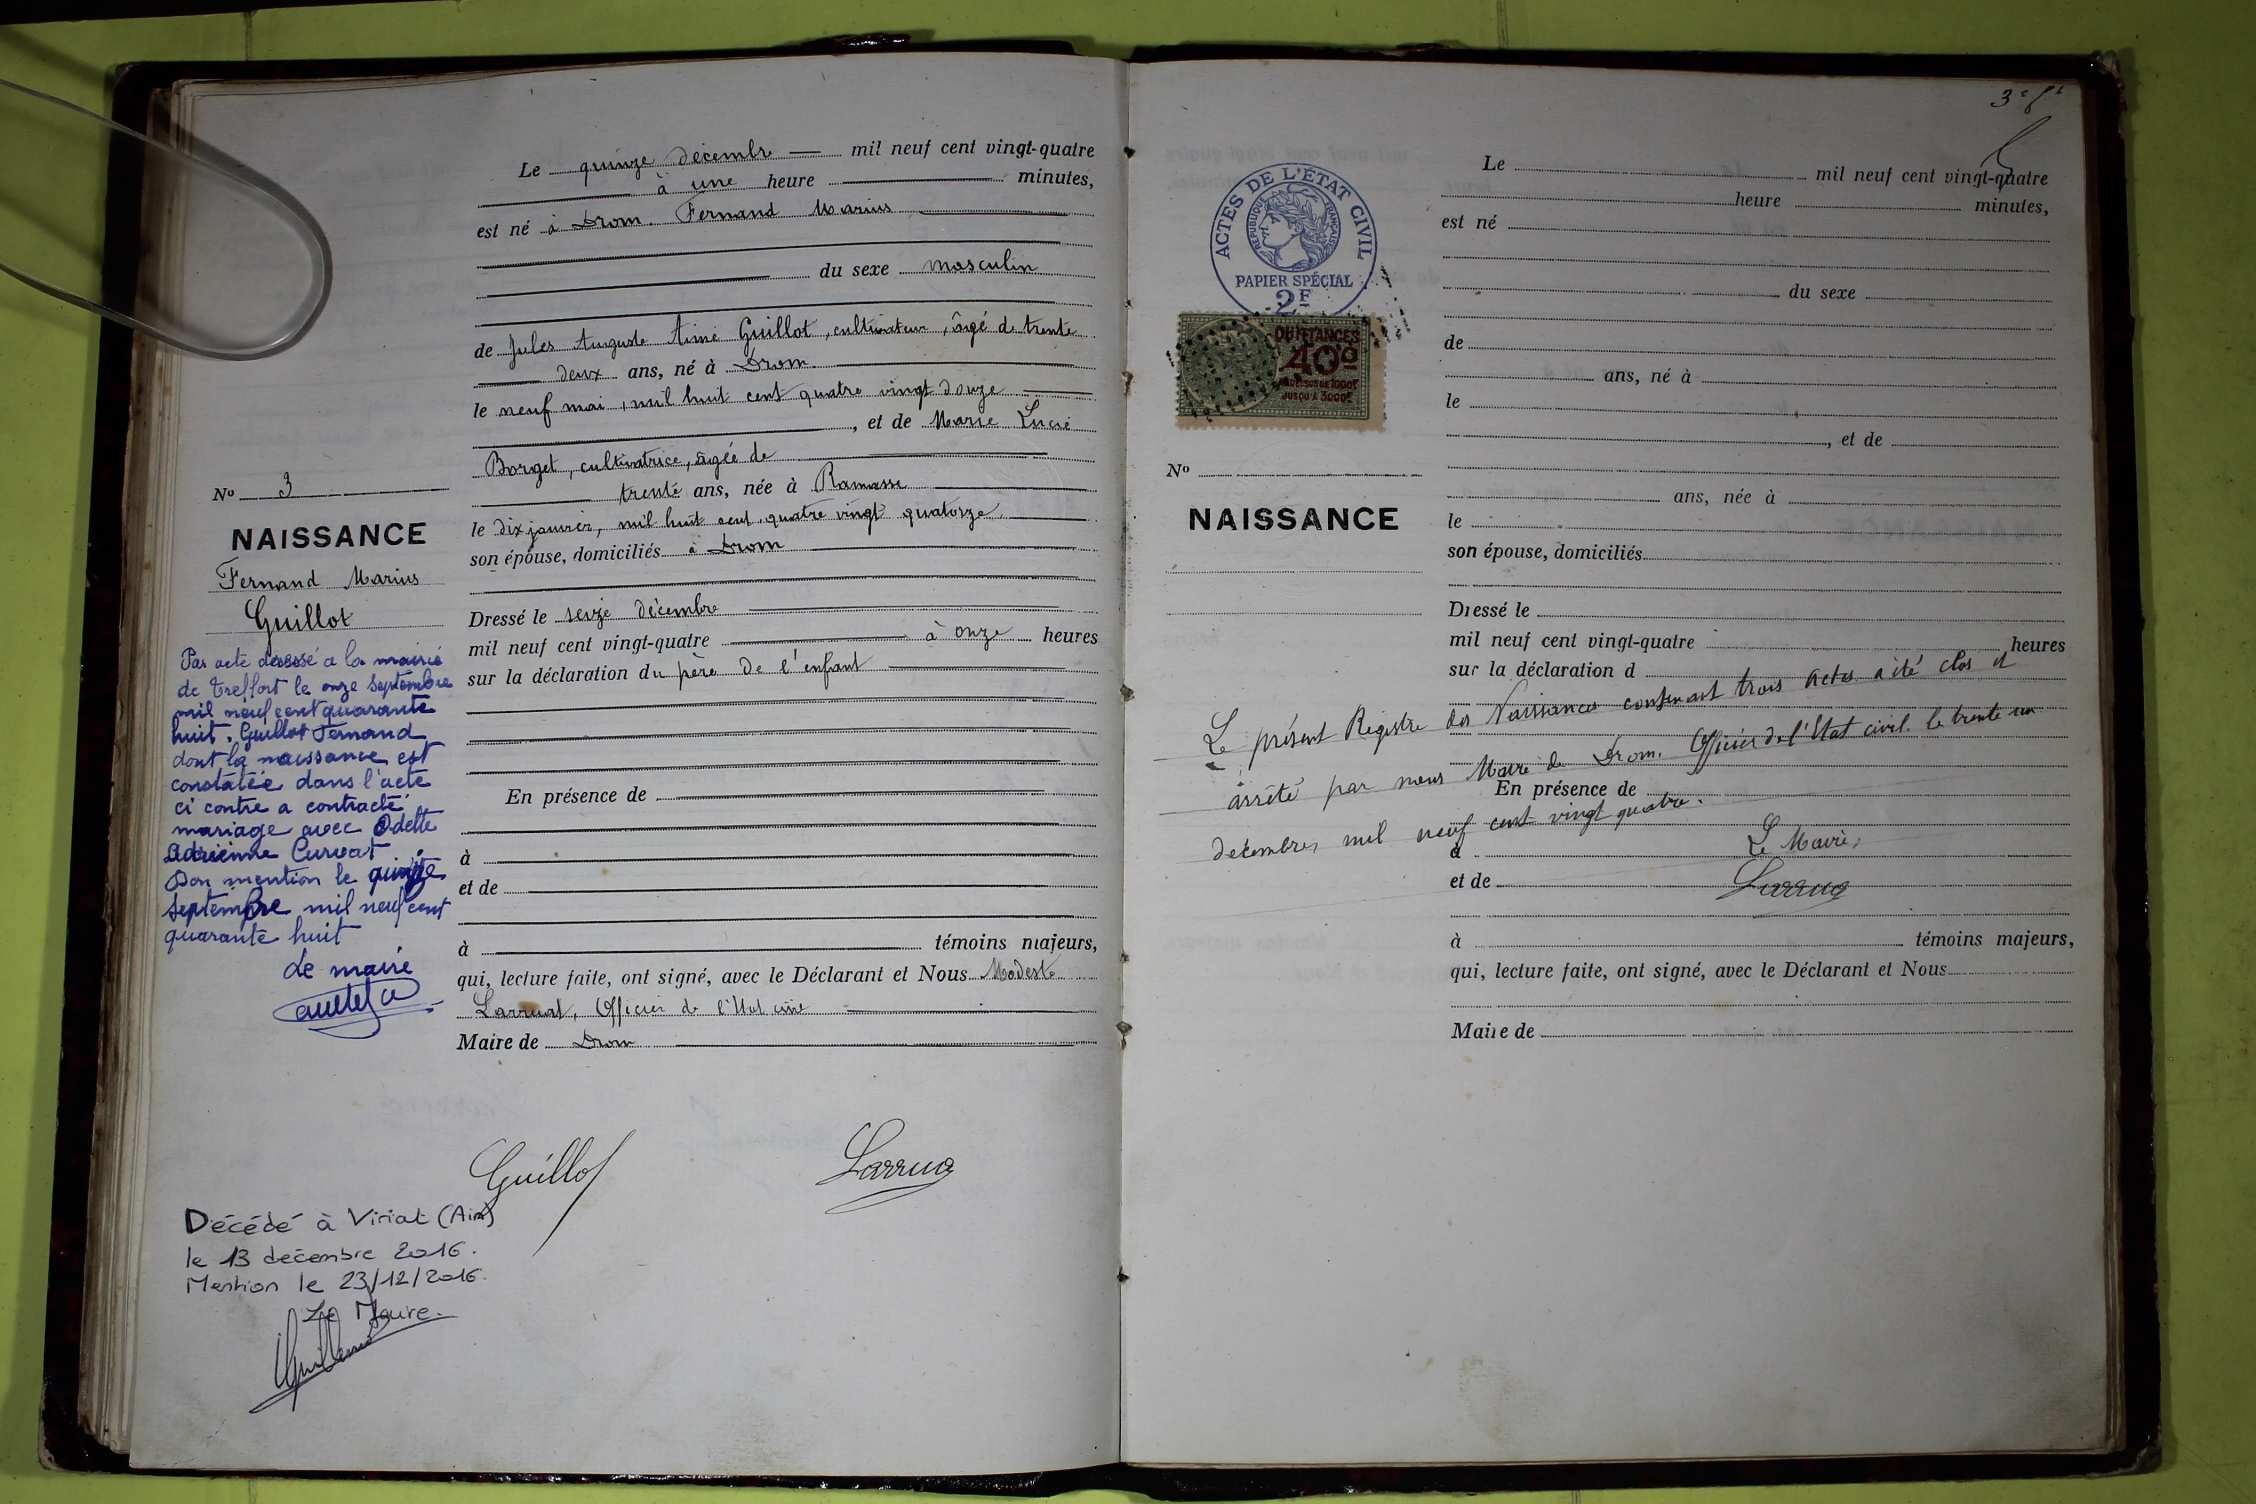 Le quinze décembre mil neuf cent vingt-quatre
à une heure minutes,
est né à Drom. Fernand Marius
du sexe masculin
de Jules Auguste Aimé Guillot, cultivateur, âgé de trente
deux ans, né à Drom.
le neuf mai, mil huit cent quatre vingt douze
, et de Marie Lucie
Borget, cultivatrice, âgée de
trente ans, née à Ramasse
le dix janvier, mil huit cent quatre vingt quatorze
son épouse, domiciliés à Drom
Dressé le seize décembre
mil neuf cent vingt-quatre à onze heures
sur la déclaration du père de l'enfant
En présence de
à
et de
à témoins majeurs,
qui, lecture faite, ont signé, avec le Déclarant et Nous Modeste
Officier de l'Etat civil
Maire de Drom
Guillot
No 3
NAISSANCE
Fernand Marius
Guillot
Par acte dressé a la mairie
de Treffort le onze septembre
mil neuf cent quarante
huit. Guillot Fernand
dont la naissance est
constatée dans l'acte
ci contre a contracté
mariage avec Odette
Adrienne Curvat
Don mention le quinze
septembre mil neuf cent
quarante huit
Le maire
Décédé à Viriat (Ain)
le 13 décembre 2016.
Mention le 23/12/2016.
Le Maire.
3e
ACTES DE L'ÉTAT CIVIL
RÉPUBLIQUE FRANÇAISE
PAPIER SPÉCIAL
2F
QUITTANCES
40c
AU DESSUS DE 1000F
JUSQU'A 3000F
No
NAISSANCE
Le mil neuf cent vingt-quatre
heure minutes,
est né
du sexe
de
ans, né à
le
, et de
ans, née à
le
son épouse, domiciliés
Dressé le
mil neuf cent vingt-quatre heures
sur la déclaration d
Le présent Registre des Naissances contenant trois actes a été clos et
arrêté par nous Maire de Drom. Officier de l'Etat civil. le trente un
En présence de
décembre, mil neuf cent vingt quatre.
à
Le Maire,
et de
à témoins majeurs,
qui, lecture faite, ont signé, avec le Déclarant et Nous
Maire de